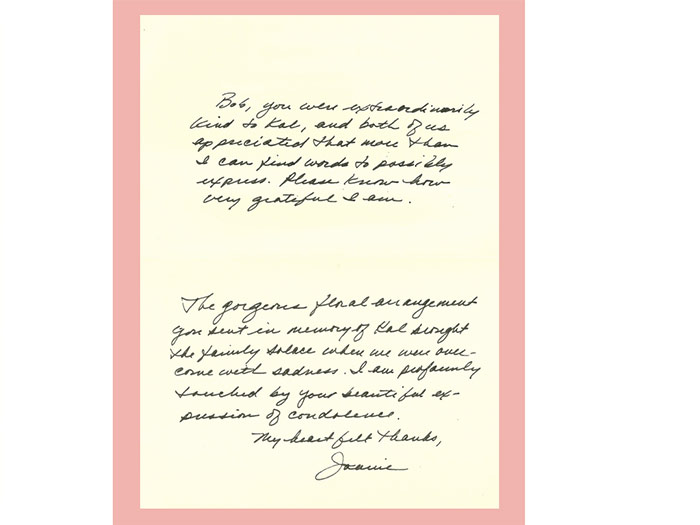 Bob, you were extraordinarily
kind to Kal, and both of us
appreciated that more than
I can find words to possibly
express. Please know how
very grateful I am.
The gorgeous floral arrangement
you sent in memory of Kal brought
the family solace when we were over-
come with sadness. I am profoundly
touched by your beautiful ex-
pression of condolence.
My heartfelt thanks,
Joanie